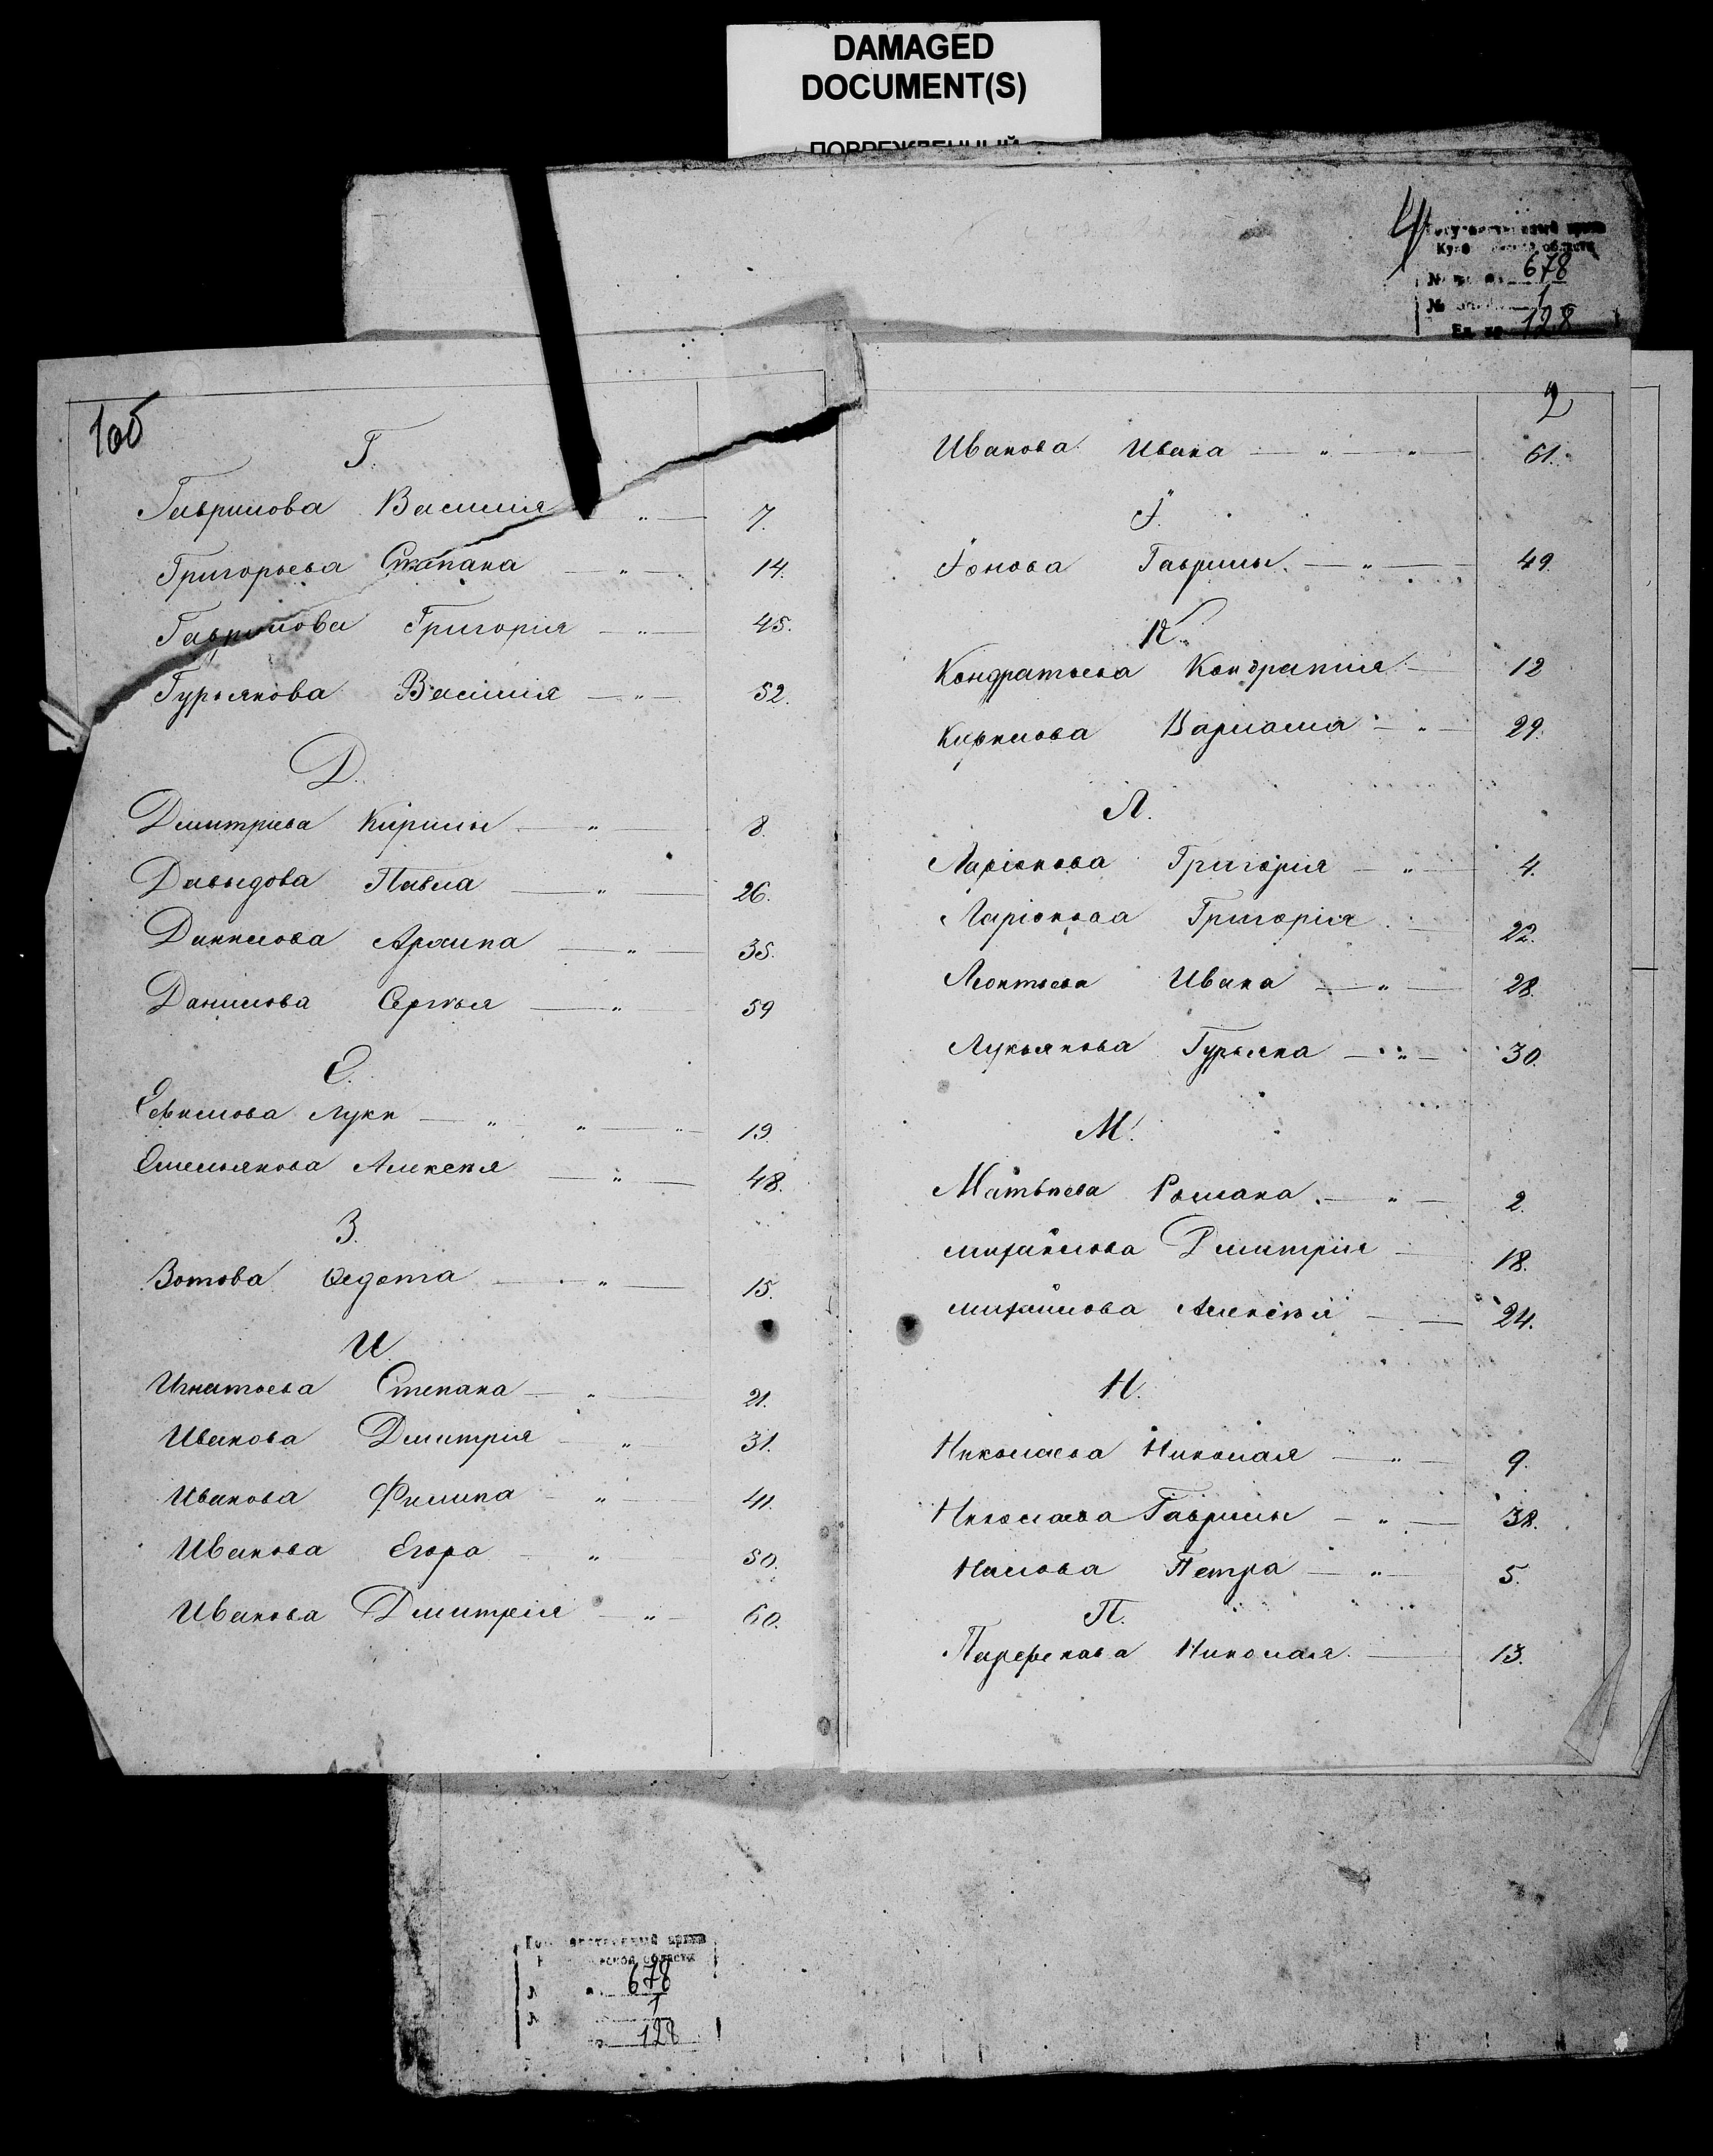 DAMAGED
DOCUMENT(S)
ПОВРЕЖДЕННЫЙ
678
1
128
1об
Г.
Гаврилова Василія — „ — 7.
Григорьева Степана — „ — 14.
Гаврилова Григорія — „ — 45.
Гурьянова Василія — „ — 52.
Д.
Дмитріева Кирилы — „ — 8.
Давыдова Павла — „ — 26.
Данилова Архипа — „ — 35.
Данилова Сергѣя — „ — 59
Е.
Ефимова Луки — „ — „ — „ — 19.
Емельянова Алексѣя — „ — 48.
З.
Зотова Федота — „ — 15.
И
Игнатьева Степана — „ — 21.
Иванова Дмитрія — „ — 31.
Иванова Филипа — „ — 41.
Иванова Егора — „ — 50.
Иванова Дмитрія — „ — 60.
2
Иванова Ивана — „ — „ — 61.
І.
Іонова Гаврилы — „ — 49.
К.
Кондратьева Кондратія — 12
Кирилова Варлама — „ — 29.
Л.
Ларіонова Григорія — „ — 4.
Ларіонова Григорія — 22.
Леонтьева Ивана — „ — 28.
Лукьянова Гурьяна — „ — 30.
М.
Матвѣева Романа — „ — 2.
Михайлова Дмитрія — 18.
Михайлова Алексѣя — 24.
Н.
Николаева Николая — „ — 9.
Николаева Гаврилы — „ — 38.
Наумова Петра — „ — 5.
П.
Парфенова Николая — 13.
678
1
128